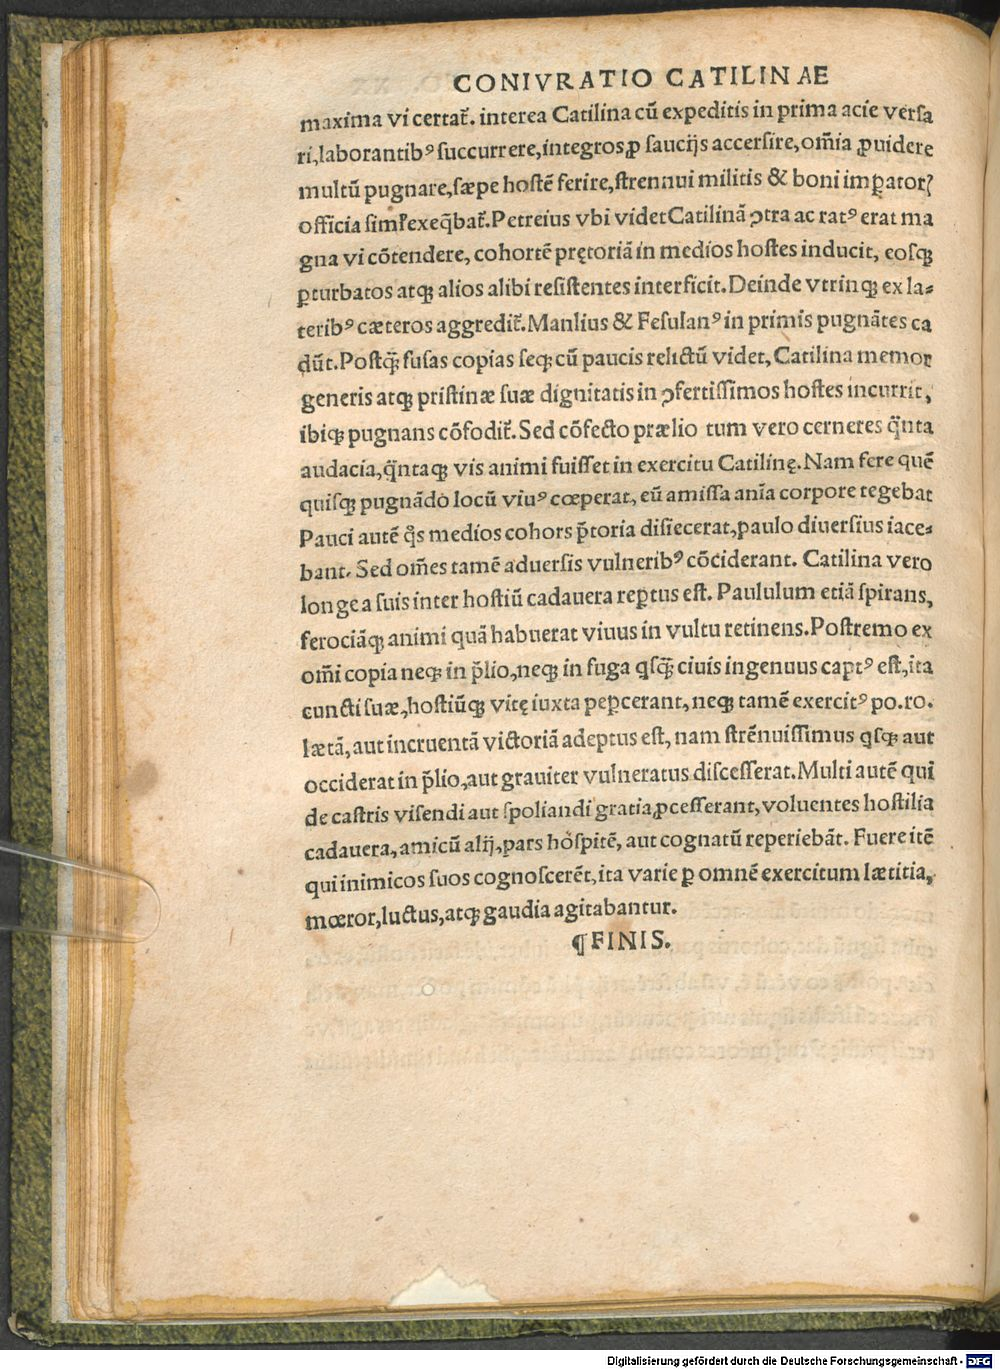 CONIVRATIO CATILINAE
maxima vi certat᷑. interea Catilina cũ expeditis in prima acie versa
ri,laborantibꝰ succurrere,integros ꝓ saucijs accersire,om̃ia ꝓuidere
multũ pugnare,sæpe hostẽ ferire,strennui militis & boni imꝑatorꝭ
officia siml̃ exeq̃bat᷑.Petreius vbi videt Catilinã ꝯtra ac ratꝰ erat ma
gna vi cõtendere, cohortẽ prętoriã in medios hostes inducit, eosqꝫ
ꝑturbatos atqꝫ alios alibi resistentes interficit.Deinde vtrinqꝫ ex la⸗
teribꝰ cæteros aggredit᷑.Manlius & Fesulanꝰ in primis pugnãtes ca
dũt.Postq̃ fusas copias seqꝫ cũ paucis relictũ videt,Catilina memor
generis atqꝫ pristinæ suæ dignitatis in ꝯfertissimos hostes incurrit,
ibiqꝫ pugnans cõfodit᷑.Sed cõfecto prælio tum vero cerneres q̃nta
audacia,q̃ntaqꝫ vis animi fuisset in exercitu Catilinę.Nam fere quẽ
quisqꝫ pugnãdo locũ viuꝰ cœperat, eũ amissa anĩa corpore tegebat
Pauci autẽ q̊s medios cohors p̃toria disiecerat,paulo diuersius iace⸗
bant. Sed om̃es tamẽ aduersis vulneribꝰ cõciderant. Catilina vero
longe a suis inter hostiũ cadauera reꝑtus est. Paululum etiã spirans,
ferociãqꝫ animi quã habuerat viuus in vultu retinens.Postremo ex
om̃i copia neqꝫ in p̃lio,neqꝫ in fuga qsq̃ ciuis ingenuus captꝰ est,ita
cuncti suæ,hostiũqꝫ vitę iuxta peꝑcerant, neqꝫ tamẽ exercitꝰ po.ro.
lætã,aut incruentã victoriã adeptus est, nam strẽnuissimus qsqꝫ aut
occiderat in p̃lio,aut grauiter vulneratus discesserat.Multi autẽ qui
de castris visendi aut spoliandi gratia ꝓcesserant,voluentes hostilia
cadauera,amicũ alij,pars hospitẽ, aut cognatũ reperiebãt. Fuere itẽ
qui inimicos suos cognoscerẽt,ita varie ꝑ omnẽ exercitum lætitia,
mœror,luctus,atqꝫ gaudia agitabantur.
¶FINIS.
Digitalisierung gefördert durch die Deutsche Forschungsgemeinschaft - DFG